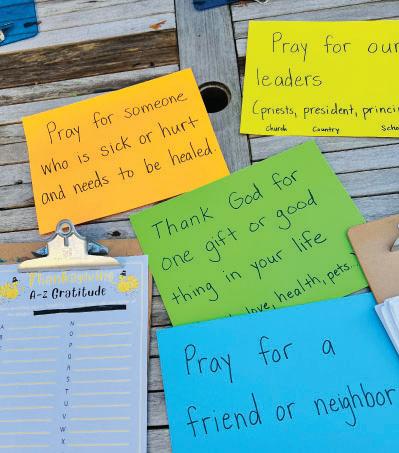 Pray for our
leaders
(priests, president, princi
church Country Scho
Pray for someone
who is sick or hurt
and needs to be healed.
Thank God for
one gift or good
thing in your life
love, health, pets...
Pray for a
friend or neighbor
Thanksgiving
A-Z Gratitude
A
B
N
O
P
Q
R
S
T
U
V
W
X